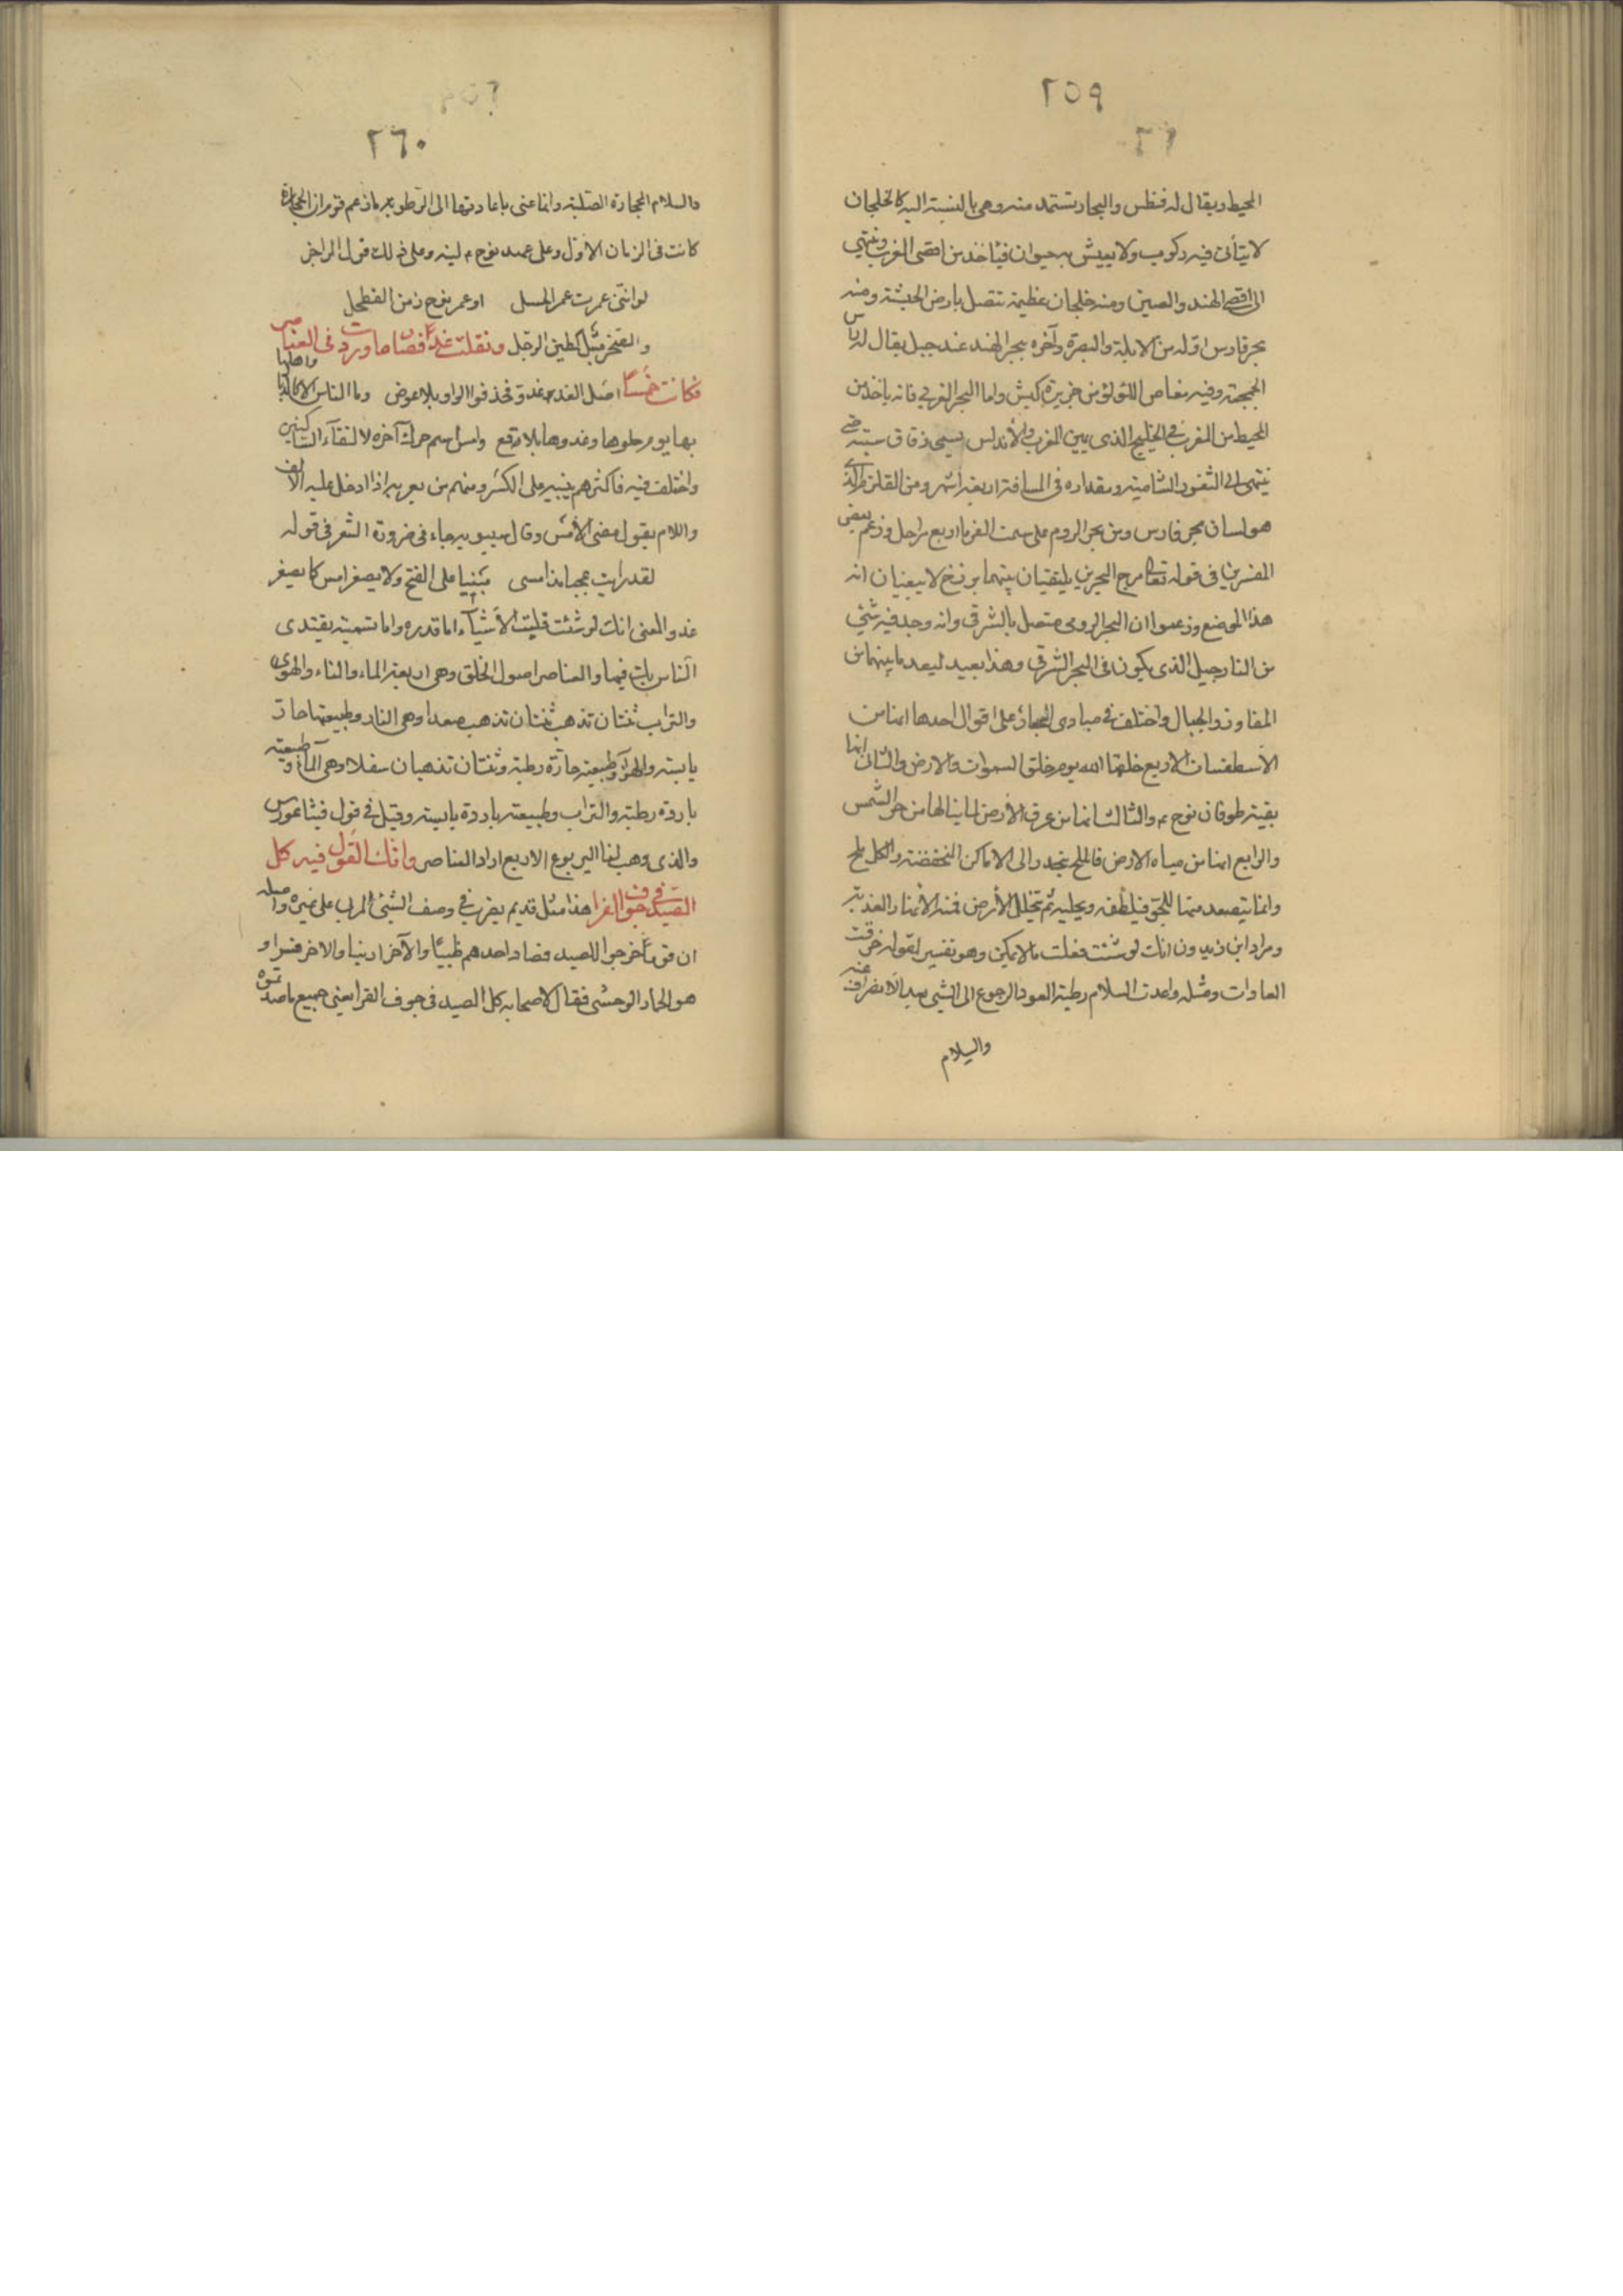 ٢٥٩
المحيط ويقال له فنطس والبحار تستمد منه وهي بالنسبة اليه كالخلجان
لا يتأتى فيه ركوب ولا يعيش به حيوان فيأخذ من اقصى المغرب وينتهي
الى اقصى الهند والصين ومنه خلجان عظيمة تتصل بارض الحبشة ومنه
بحر فارس اوله من الابلة والبصرة وآخره ببحر الهند عند جبل يقال له راس
الجمجمة وفيه مغاص اللؤلؤ من جزيرة كيش واما البحر الغربي فانه ياخذ من
المحيط من المغرب في الخليج الذي بين المغرب والأندلس يسمى زقاق سبتة حتى
ينتهى الى الثغور الشامية ومقداره في المسافة اربعة اشهر ومن القلزم الذي
هو لسان بحر فارس وبين بحر الروم على سمت الفرما اربع مراحل وزعم بعض
المفسرين في قوله تعالى مرج البحرين يلتقيان بينهما برزخ لا يبغيان انه
هذا الموضع وزعموا ان البحر الرومي متصل بالشرقي وانه وجد فيه شئ
من النارجيل الذى يكون فى البحر الشرقى وهذا بعيد لبعد ما بينهما من
المفاوز والجبال واختلف في مبادى البحار على اقوال احدها انها من
الأسطقسات الاربع خلقها الله يوم خلق السموات والارض والثاني انها
بقية طوفان نوح ع م والثالث انها من عرق الأرض لما ينالها من حر الشمس
والرابع انها من مياه الارض فالملح ينحدر الى الاماكن المنخفضة والكل ملح
وانما يتصعد منها للجو فيلطفه ويحليه ثم تخلل الأرض فمنه الأنهار العذبة
ومراد ابن زيدون انك لو شئت فعلت ما لا يمكن وهو تفسير لقوله خرقت
العادات ومثله واعدت السلام رطبة العود الرجوع الى الشي بعد الانصراف عنه
والسلام
٢٦٠
والسلام الحجارة الصلبة وانما عنى باعادتها الى الرطوبة ما زعم قوم ان الحجارة
كانت فى الزمان الأول وعلى عهد نوح ع م لينة وعلى ذلك قول الراجز
لو انني عمرت عمر الحسل او عمر نوح زمن الفطحل
والصخر مبتل كطين الوحل ونقلت غداً فصار امساً وزدت فى العناصر
فكانت خمساً اصل الغد غدو فحذفوا الواو بلا عوض وما الناس الا كالديار واهلها
بها يوم حلوها وغدوا بلاقع وامس اسم حرك آخره لالتقاء الساكنين
واختلف فيه فاكثرهم يبنيه على الكسر ومنهم من يعربه اذا دخل عليه الالف
واللام يقول مضى الأمس وقال سيبويه جاء فى ضرورة الشعر فى قوله
لقد رايت عجبا مذ امسى مبنيا على الفتح ولا يصغر امس كما يصغر
غد والمعنى انك لو شئت قلبت الأشياء اما قدره واما تسمية يقتدى
الناس بك فيها والعناصر اصول الخلق وهى اربعة الماء والنار والهوى
والتراب ثنتان تذهب صعدا وهى النار وطبيعتها حارة
يابسة والهوآء وطبيعته حارة رطبة وثنتان تذهبان سفلا وهى الماء وطبيعته
باردة رطبة والتراب وطبيعته باردة يابسة وقيل في قول فيثاغورس
والذى وهب لنا الينبوع الاربع اراد العناصر وانك القول فيه كل
الصيد في جوف الفرا هذا مثل قديم يضرب في وصف الشئ المربى على غيره واصله
ان قوماً خرجوا للصيد فصاد احدهم ظبيًا والآخر ارنبا والاخر فرا و
هو الحمار الوحشى فقال لاصحابه كل الصيد فى جوف الفرا يعنى جميع ما صدتموه